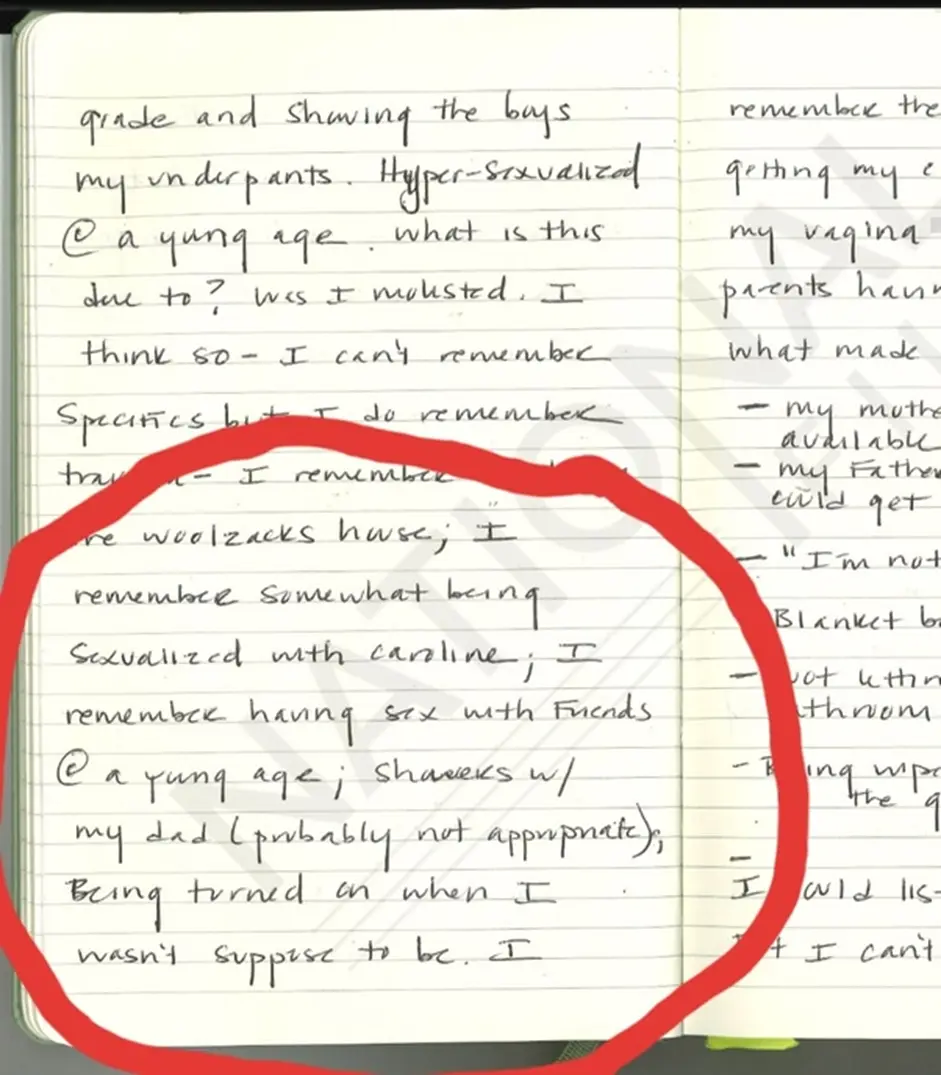 grade and showing the boys
my underpants. Hyper-Sexualized
@ a yung age. what is this
due to? Was I molested. I
think so - I can't remember
Specifics but I do remember
- I remember
woolzacks house; I
remember somewhat being
Sexualized with caroline; I
remember having sex with Friends
@ a yung age; showers w/
my dad (probably not appropriate);
Being turned on when I
wasn't suppose to be. I
remember the
getting my
my vagina
parents
what made
- my
available
- my
could get
- "I'm not
Blanket
-
-
the
-
I
I can't
NATIONAL